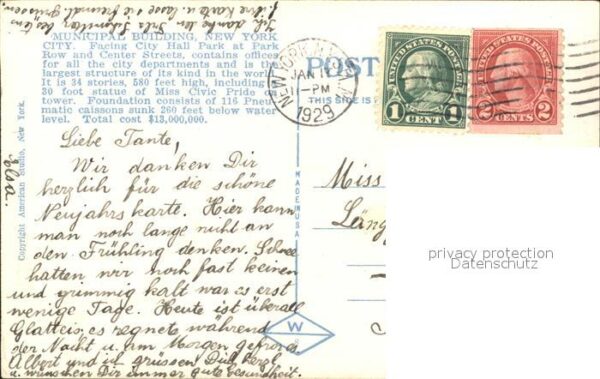 Ich danke den Frl. Schwester bestens
f. ihre Karte u. lasse sie freundl. grüssen.
MUNICIPAL BUILDING, NEW YORK
CITY. Facing City Hall Park at Park
Row and Center Streets, contains offices
for all the city departments and is the
largest structure of its kind in the world.
It is 34 stories, 580 feet high, including
30 foot statue of Miss Civic Pride on
tower. Foundation consists of 116 Pneu-
matic caissons sunk 260 feet below water
level. Total cost $13,000,000.
Liebe Tante,
Wir danken Dir
herzlich für die schöne
Neujahrskarte. Hier kann
man noch lange nicht an
den Frühling denken. Schnee
hatten wir noch fast keinen
und grimmig kalt war es erst
wenige Tage. Heute ist überall
Glatteis, es regnete während
der Nacht u. am Morgen gefror es.
Albert und ich grüssen Dich herzl.
u. wünschen Dir immer gute Gesundheit.
Elsa.
Copyright American Studio, New York.
MADE IN USA
W
POST
THIS SIDE IS
NEW YORK, N.Y.
JAN 18
11-PM
1929
UNITED STATES POSTAGE
1 CENT 1
UNITED STATES POSTAGE
2 CENTS 2
Miss
Läng
privacy protection
Datenschutz